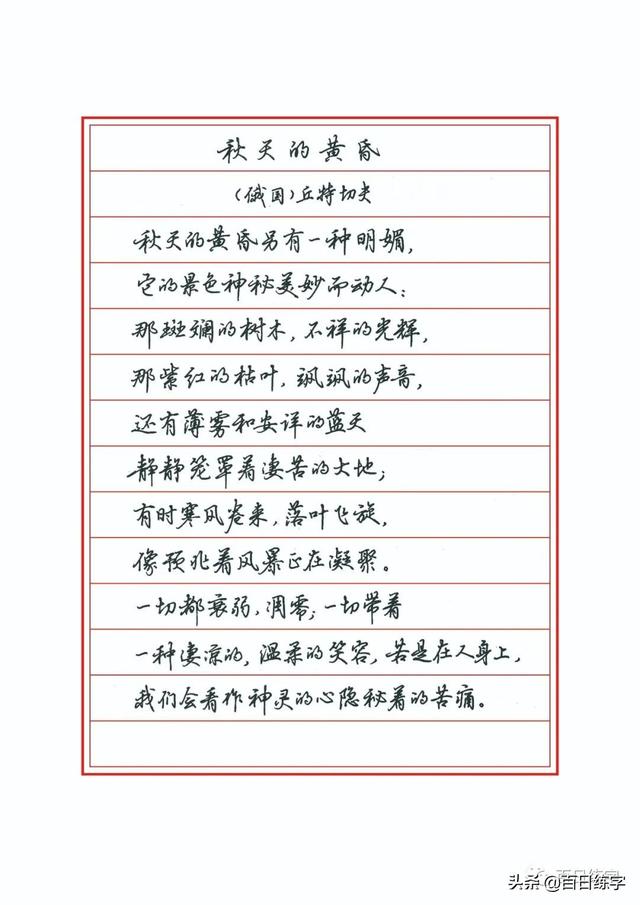 秋天的黄昏
(俄国)丘特切夫
秋天的黄昏另有一种明媚,
它的景色神秘美妙而动人:
那斑斓的树木,不祥的光辉,
那紫红的枯叶,飒飒的声音,
还有薄雾和安详的蓝天
静静笼罩着凄苦的大地;
有时寒风卷来,落叶飞旋,
像预兆着风暴正在凝聚。
一切都衰弱,凋零;一切带着
一种凄凉的,温柔的笑容,若是在人身上,
我们会看作神灵的心隐秘着的苦痛。
百日练字
头条 @百日练字